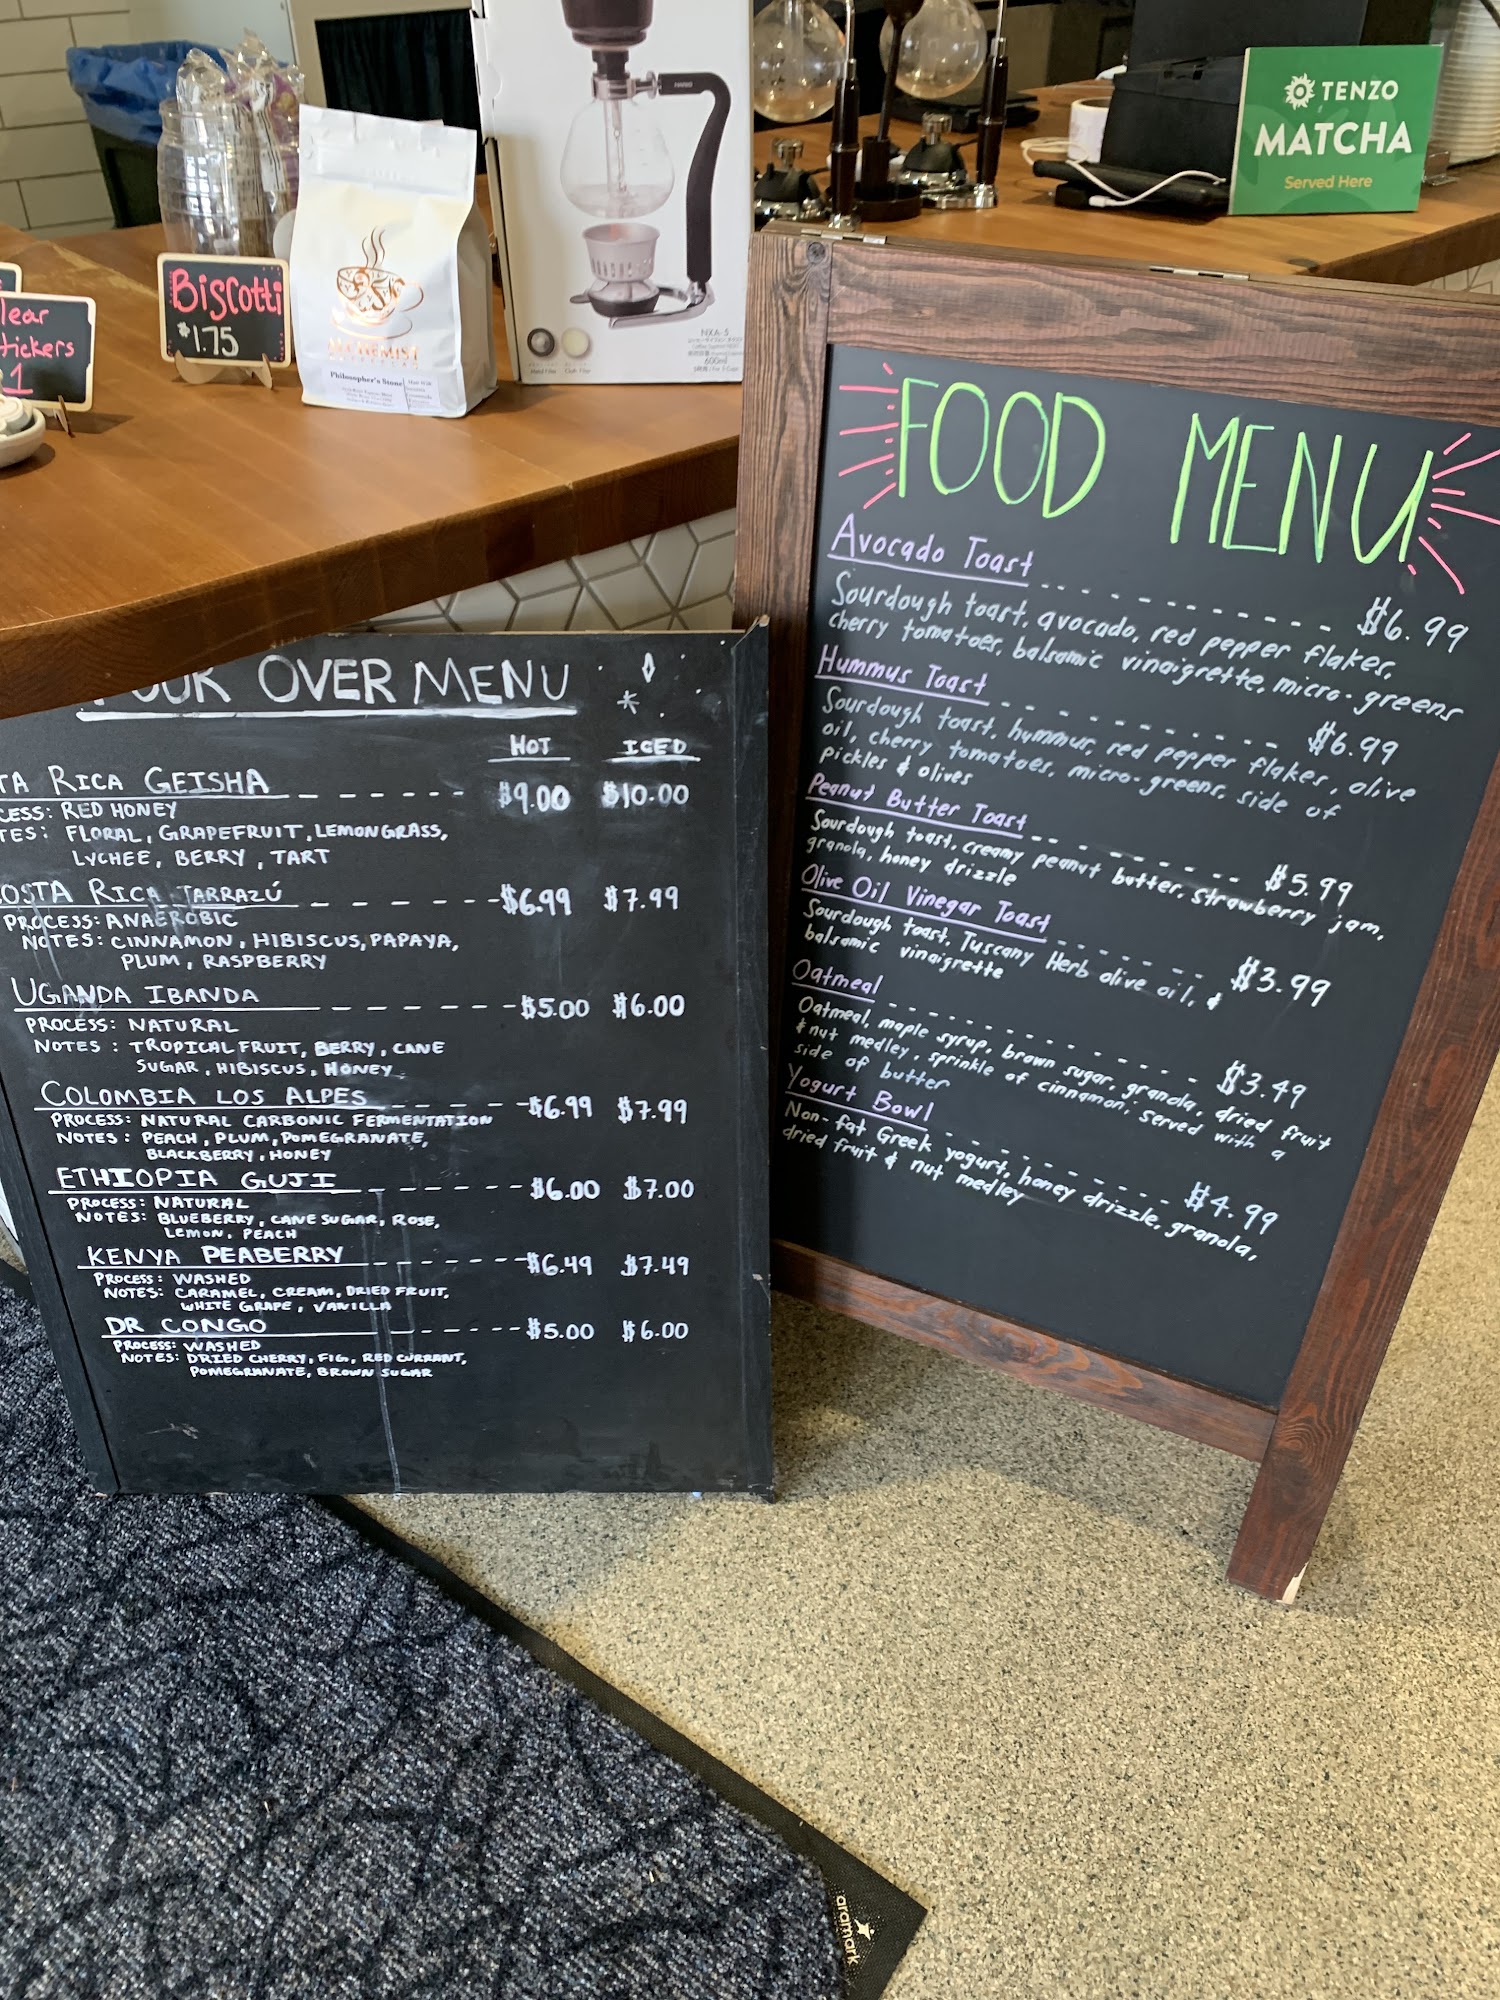 TENZO
MATCHA
Served Here
Biscotti
$1.75
lear
tickers
1
ALCHEMIST
Philosopher's Stone
HARIO
NXA-5
600ml
FOOD MENU
Avocado Toast - - - - - - - - - - - $6.99
Sourdough toast, avocado, red pepper flakes,
cherry tomatoes, balsamic vinaigrette, micro-greens
Hummus Toast - - - - - - - - - - - $6.99
Sourdough toast, hummus, red pepper flakes, olive
oil, cherry tomatoes, micro-greens, side of
pickles & olives
Peanut Butter Toast - - - - - - - - $5.99
Sourdough toast, creamy peanut butter, strawberry jam,
granola, honey drizzle
Olive Oil Vinegar Toast - - - - - - $3.99
Sourdough toast, Tuscany Herb olive oil, &
balsamic vinaigrette
Oatmeal - - - - - - - - - - - - - $3.49
Oatmeal, maple syrup, brown sugar, granola, dried fruit
& nut medley, sprinkle of cinnamon, served with a
side of butter
Yogurt Bowl - - - - - - - - - - $4.99
Non-fat Greek yogurt, honey drizzle, granola,
dried fruit & nut medley
OUR OVER MENU
HOT ICED
TA RICA GEISHA - - - - - - $9.00 $10.00
CESS: RED HONEY
TES: FLORAL, GRAPEFRUIT, LEMONGRASS,
LYCHEE, BERRY, TART
OSTA RICA TARRAZÚ - - - - - - $6.99 $7.99
PROCESS: ANAEROBIC
NOTES: CINNAMON, HIBISCUS, PAPAYA,
PLUM, RASPBERRY
UGANDA IBANDA - - - - - - $5.00 $6.00
PROCESS: NATURAL
NOTES: TROPICAL FRUIT, BERRY, CANE
SUGAR, HIBISCUS, HONEY
COLOMBIA LOS ALPES - - - - - - $6.99 $7.99
PROCESS: NATURAL CARBONIC FERMENTATION
NOTES: PEACH, PLUM, POMEGRANATE,
BLACKBERRY, HONEY
ETHIOPIA GUJI - - - - - - - $6.00 $7.00
PROCESS: NATURAL
NOTES: BLUEBERRY, CANE SUGAR, ROSE,
LEMON, PEACH
KENYA PEABERRY - - - - - - - $6.49 $7.49
PROCESS: WASHED
NOTES: CARAMEL, CREAM, DRIED FRUIT,
WHITE GRAPE, VANILLA
DR CONGO - - - - - - $5.00 $6.00
PROCESS: WASHED
NOTES: DRIED CHERRY, FIG, RED CURRANT,
POMEGRANATE, BROWN SUGAR
aramark